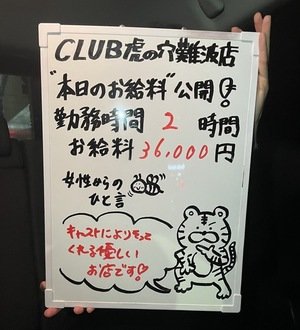 CLUB虎の穴難波店
"本日のお給料"公開!
勤務時間 2 時間
お給料36,000円
女性からの
ひと言
キャストによりそって
くれる優しい
お店です♡